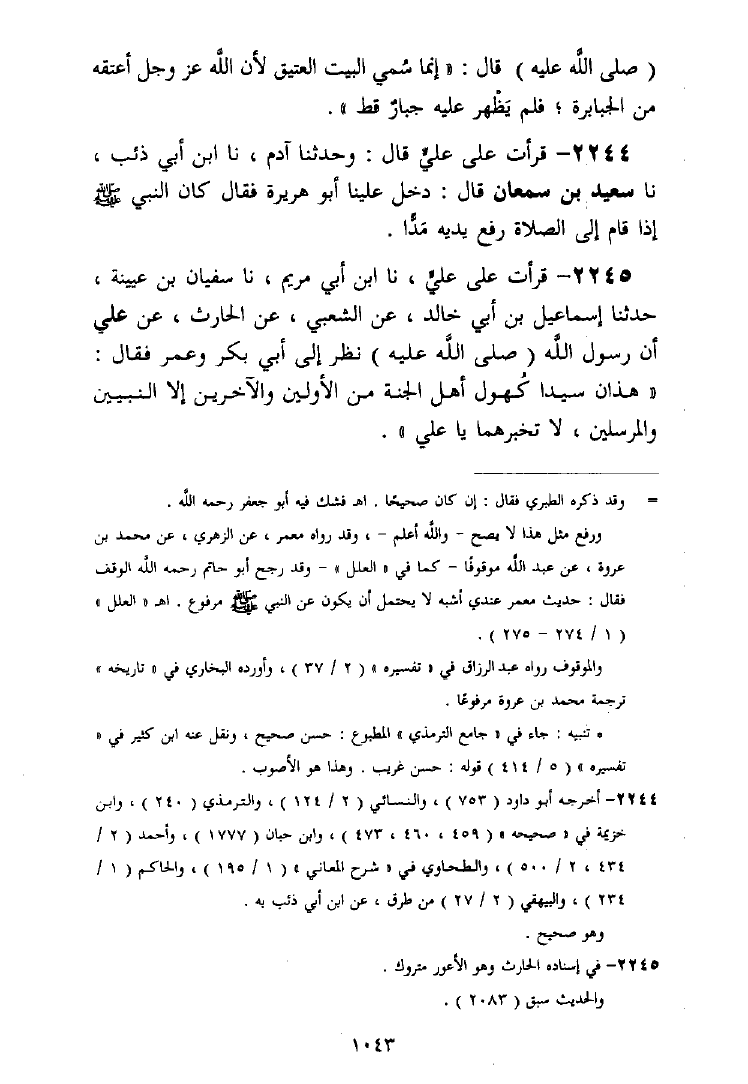 ( صلى الله عليه ) قال : « إنما سُمي البيت العتيق لأن الله عز وجل أعتقه
من الجبابرة ؛ فلم يَظْهر عليه جبارٌ قط » .
٢٢٤٤– قرأت على عليٍّ قال : وحدثنا آدم ، نا ابن أبي ذئب ،
نا سعيد بن سمعان قال : دخل علينا أبو هريرة فقال كان النبي ﷺ
إذا قام إلى الصلاة رفع يديه مَدًّا .
٢٢٤٥– قرأت على عليٍّ ، نا ابن أبي مريم ، نا سفيان بن عيينة ،
حدثنا إسماعيل بن أبي خالد ، عن الشعبي ، عن الحارث ، عن علي
أن رسول الله ( صلى الله عليه ) نظر إلى أبي بكر وعمر فقال :
« هذان سيدا كُهول أهل الجنة من الأولين والآخرين إلا النبيين
والمرسلين ، لا تخبرهما يا علي » .
= وقد ذكره الطبري فقال : إن كان صحيحًا . اهـ فشك فيه أبو جعفر رحمه الله .
ورفع مثل هذا لا يصح – والله أعلم – ، وقد رواه معمر ، عن الزهري ، عن محمد بن
عروة ، عن عبد الله موقوفًا – كما في « العلل » – وقد رجح أبو حاتم رحمه الله الوقف
فقال : حديث معمر عندي أشبه لا يحتمل أن يكون عن النبي ﷺ مرفوع . اهـ « العلل »
( ١ / ٢٧٤ – ٢٧٥ ) .
والموقوف رواه عبد الرزاق في « تفسيره » ( ٢ / ٣٧ ) ، وأورده البخاري في « تاريخه »
ترجمة محمد بن عروة مرفوعًا .
* تنبيه : جاء في « جامع الترمذي » المطبوع : حسن صحيح ، ونقل عنه ابن كثير في «
تفسيره » ( ٥ / ٤١٤ ) قوله : حسن غريب . وهذا هو الأصوب .
٢٢٤٤– أخرجه أبو داود ( ٧٥٣ ) ، والنسائي ( ٢ / ١٢٤ ) ، والترمذي ( ٢٤٠ ) ، وابن
خزيمة في « صحيحه » ( ٤٥٩ ، ٤٦٠ ، ٤٧٣ ) ، وابن حبان ( ١٧٧٧ ) ، وأحمد ( ٢ /
٤٣٤ ، ٢ / ٥٠٠ ) ، والطحاوي في « شرح المعاني » ( ١ / ١٩٥ ) ، والحاكم ( ١ /
٢٣٤ ) ، والبيهقي ( ٢ / ٢٧ ) من طرق ، عن ابن أبي ذئب به .
وهو صحيح .
٢٢٤٥– في إسناده الحارث وهو الأعور متروك .
والحديث سبق ( ٢٠٨٣ ) .
١٠٤٣